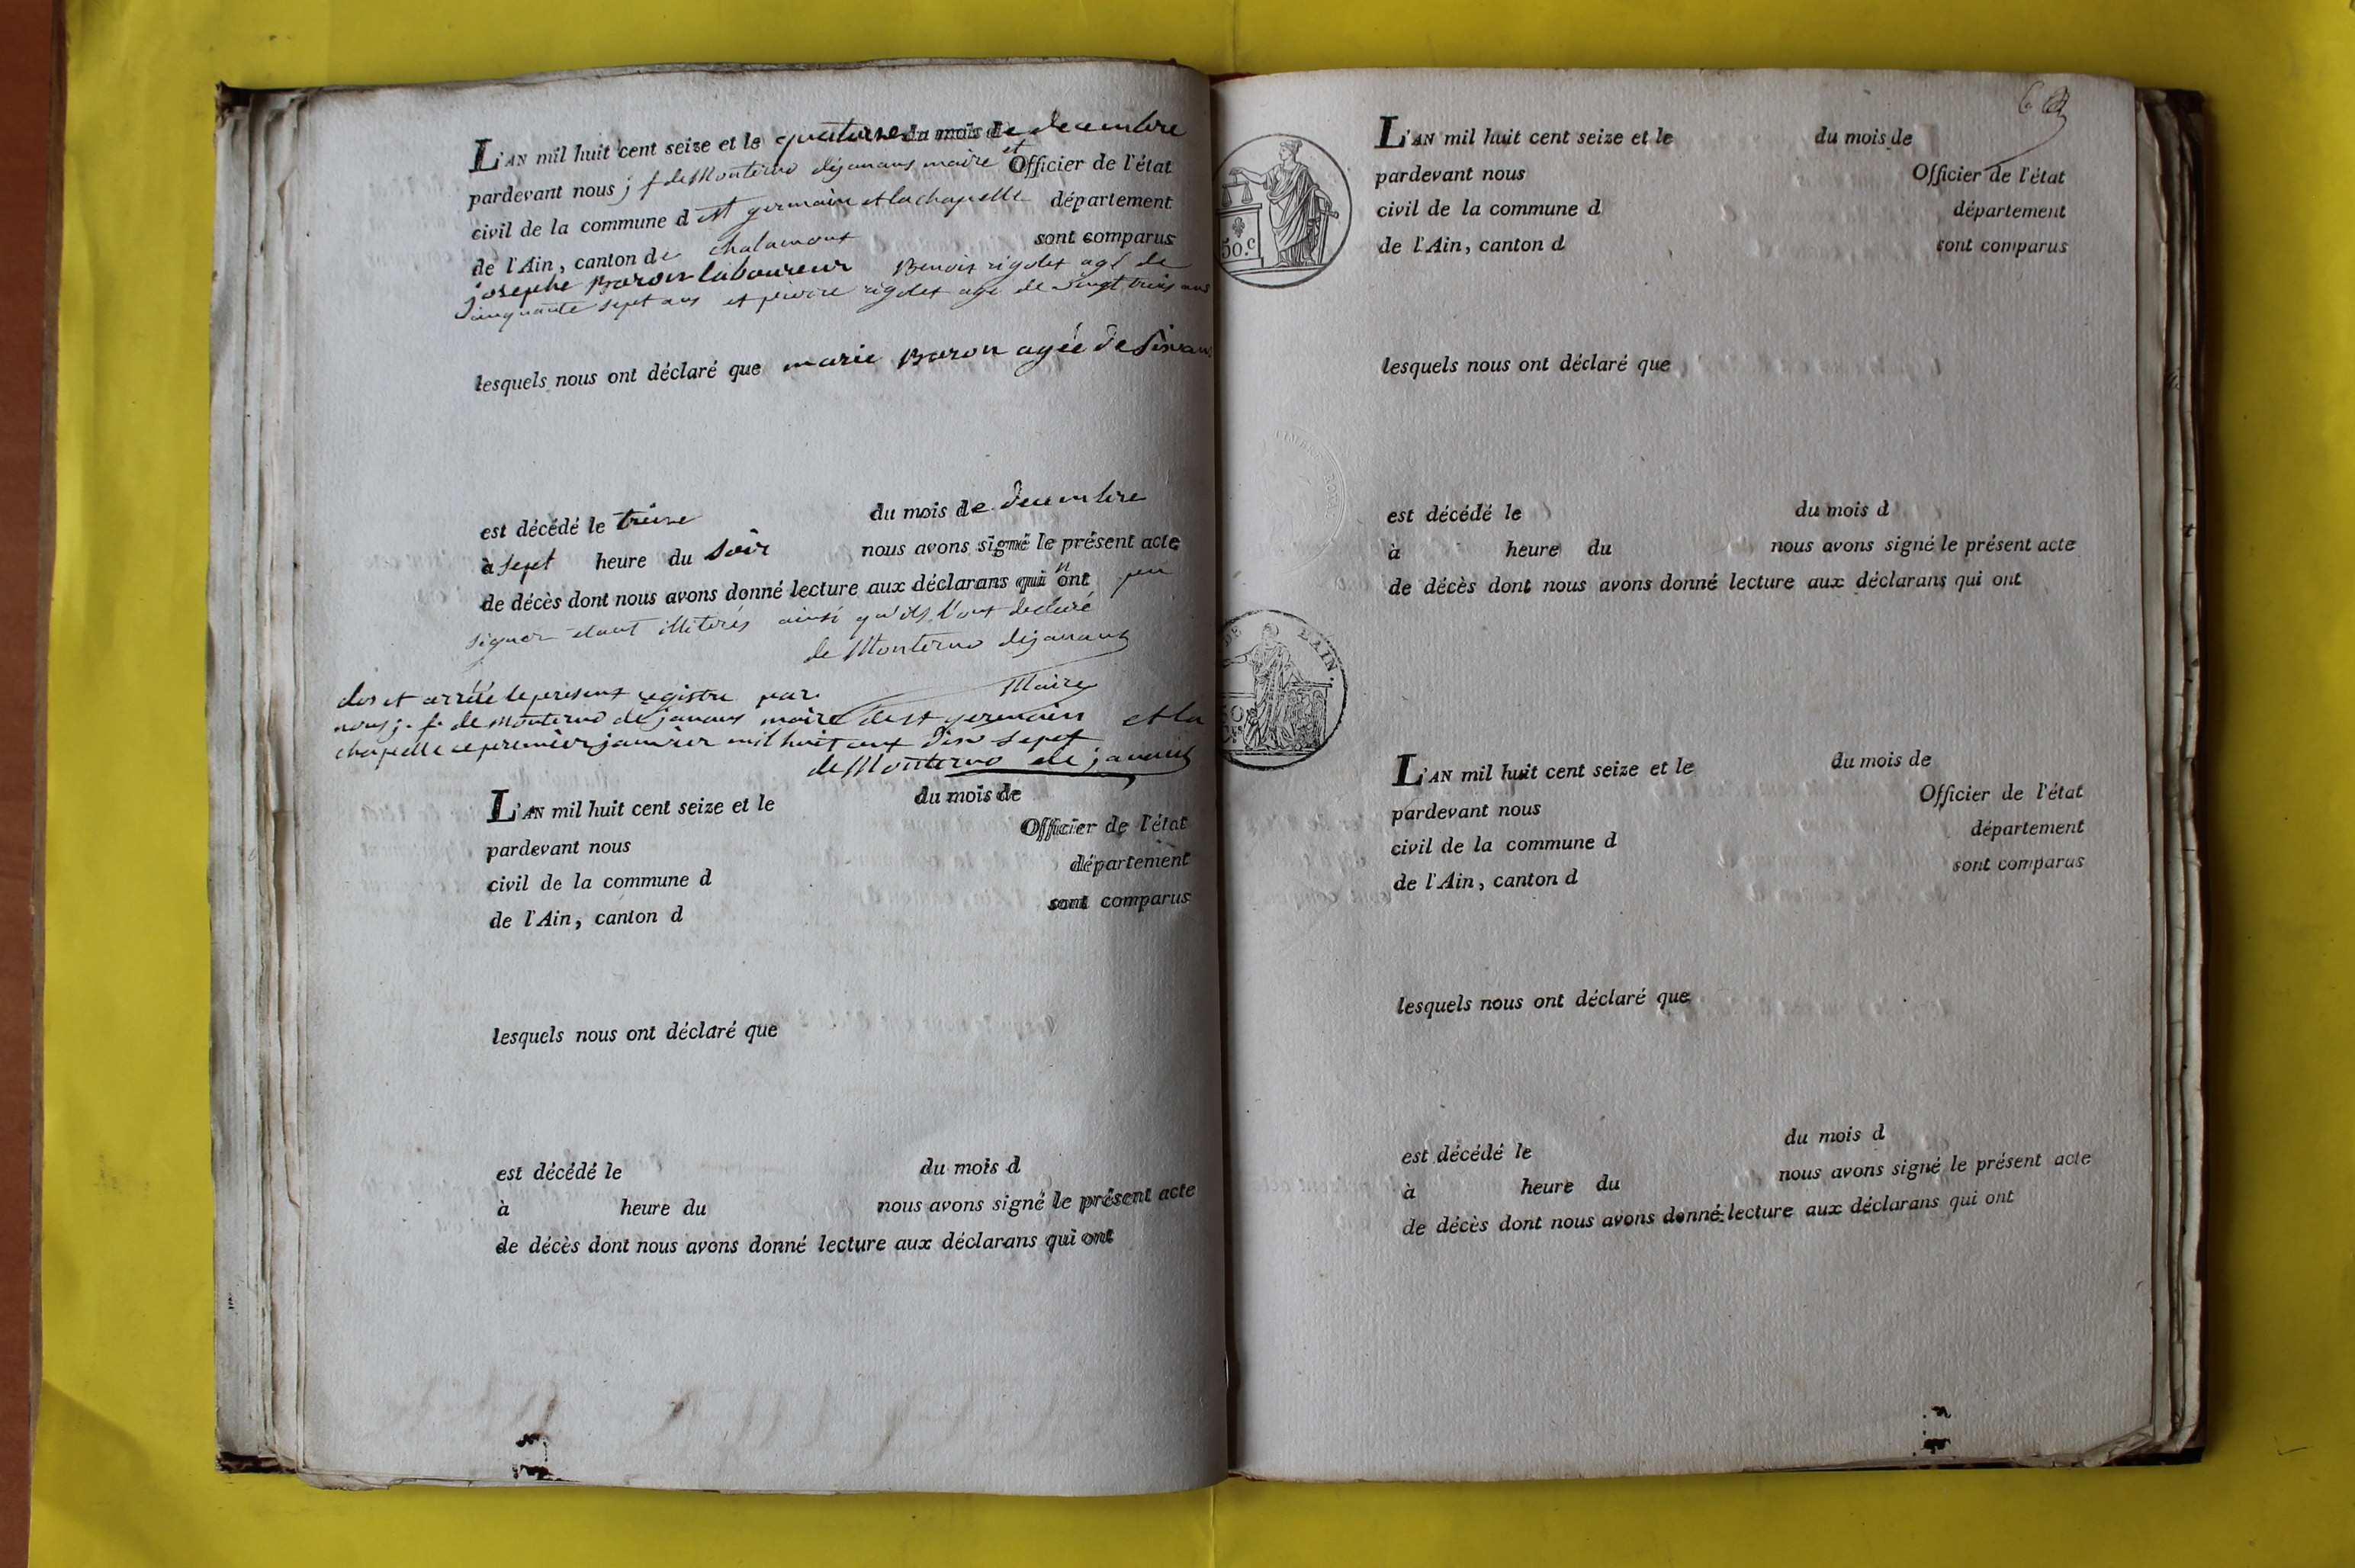 L'AN mil huit cent seize et le quatorse du mois de decembre
pardevant nous j f de Monterno dejanans maire et Officier de l'état
civil de la commune d est germain et la chapelle département
de l'Ain, canton de chalamont sont comparus
josephe Baron laboureur Benois rigolet agé de
cinquante sept ans et pierre rigolet agé de vingt trois ans
lesquels nous ont déclaré que marie Baron agée de six ans
est décédé le treise du mois de decembre
à sept heure du soir nous avons signé le présent acte
de décès dont nous avons donné lecture aux déclarans qui n'ont pu
signer étant illiterés ainsi qu'ils l'ont declaré
de Monterno dejanans
Maire
clos et arrété le present registre par
nous j. f. de Monterno dejanans maire de st germain et la
chapelle ce premier janvier mil huit cent dix sept
de Monterno dejanans
L'AN mil huit cent seize et le du mois de
pardevant nous Officier de l'état
civil de la commune d département
de l'Ain, canton d sont comparus
lesquels nous ont déclaré que
est décédé le du mois d
à heure du nous avons signé le présent acte
de décès dont nous avons donné lecture aux déclarans qui ont
L'AN mil huit cent seize et le du mois de
pardevant nous Officier de l'état
civil de la commune d département
de l'Ain, canton d sont comparus
50.c
lesquels nous ont déclaré que
est décédé le du mois d
à heure du nous avons signé le présent acte
de décès dont nous avons donné lecture aux déclarans qui ont
DE L'AIN.
L'AN mil huit cent seize et le du mois de
pardevant nous Officier de l'état
civil de la commune d département
de l'Ain, canton d sont comparus
lesquels nous ont déclaré que
est décédé le du mois d
à heure du nous avons signé le présent acte
de décès dont nous avons donné lecture aux déclarans qui ont